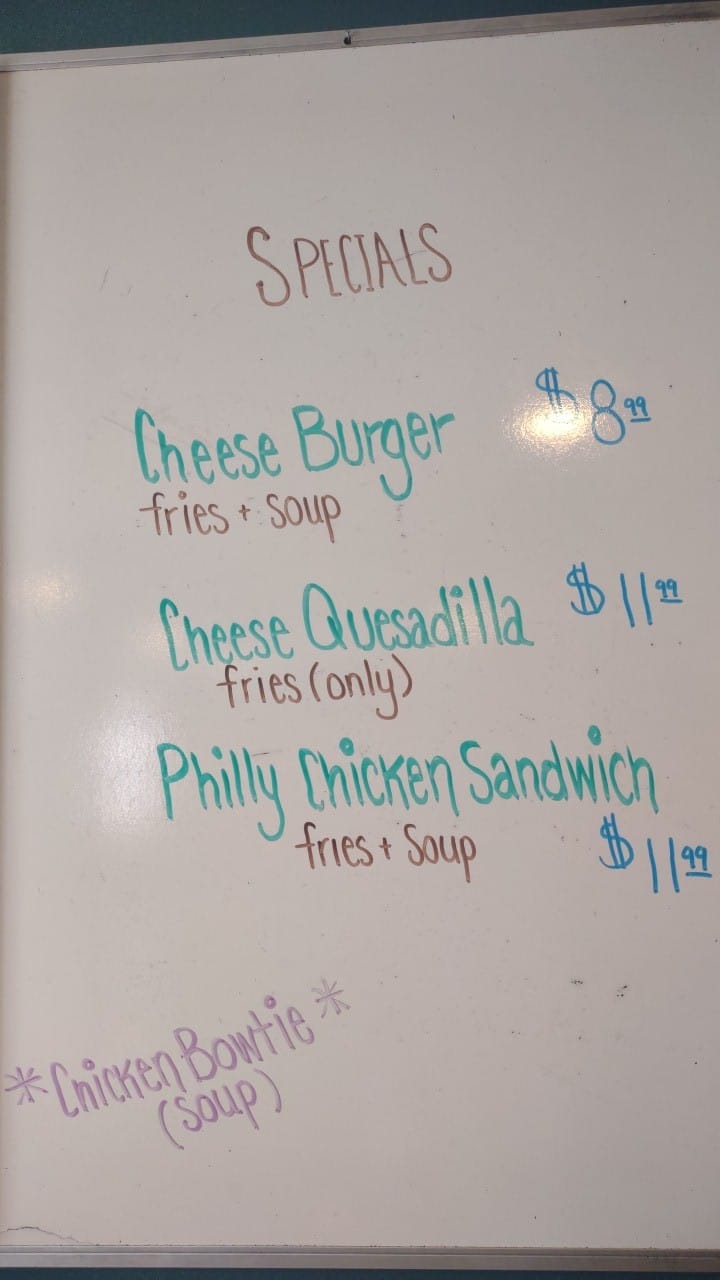 SPECIALS
Cheese Burger $ 8.99
fries + soup
Cheese Quesadilla $ 11.99
fries (only)
Philly Chicken Sandwich
fries + Soup $ 11.99
*Chicken Bowtie*
(soup)